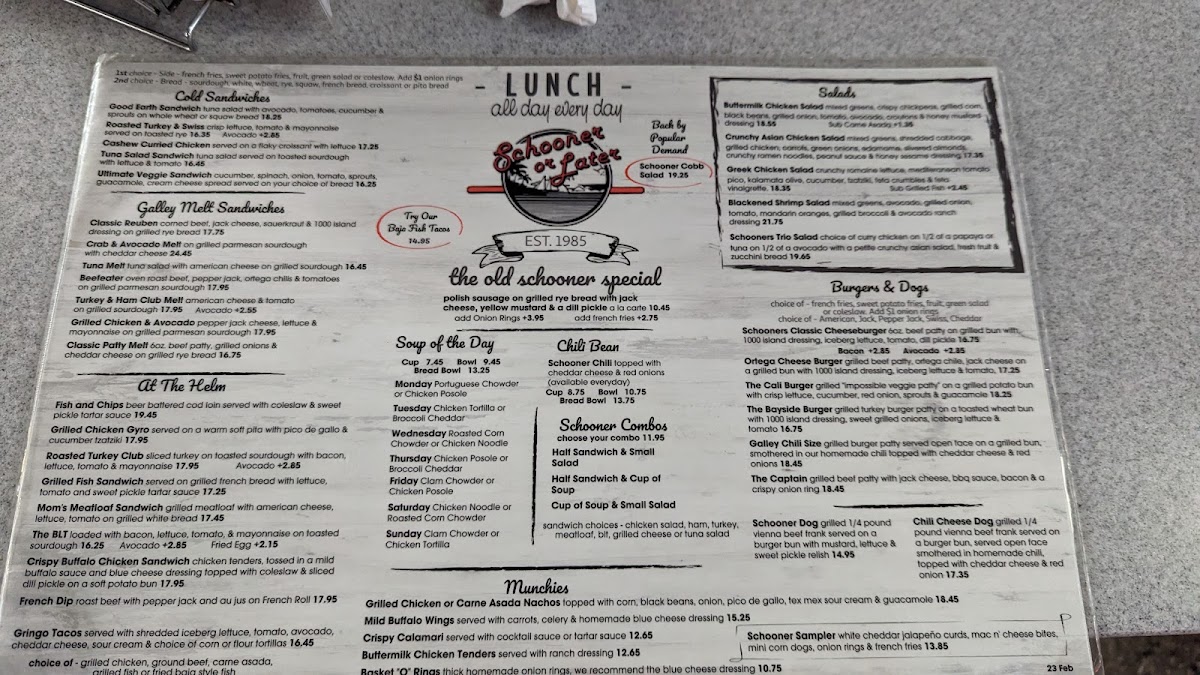 1st choice - Side - french fries, sweet potato fries, fruit, green salad or coleslaw. Add $1 onion rings
2nd choice - Bread - sourdough, white, wheat, rye, squaw, french bread, croissant or pita bread
Cold Sandwiches
Good Earth Sandwich tuna salad with avocado, tomatoes, cucumber &
sprouts on whole wheat or squaw bread 18.25
Roasted Turkey & Swiss crisp lettuce, tomato & mayonnaise
served on toasted rye 16.35 Avocado +2.85
Cashew Curried Chicken served on a flaky croissant with lettuce 17.25
Tuna Salad Sandwich tuna salad served on toasted sourdough
with lettuce & tomato 16.45
Ultimate Veggie Sandwich cucumber, spinach, onion, tomato, sprouts,
guacamole, cream cheese spread served on your choice of bread 16.25
Galley Melt Sandwiches
Classic Reuben corned beef, jack cheese, sauerkraut & 1000 island
dressing on grilled rye bread 17.75
Crab & Avocado Melt on grilled parmesan sourdough
with cheddar cheese 24.45
Tuna Melt tuna salad with american cheese on grilled sourdough 16.45
Beefeater oven roast beef, pepper jack, ortega chilis & tomatoes
on grilled parmesan sourdough 17.95
Turkey & Ham Club Melt american cheese & tomato
on grilled sourdough 17.95 Avocado +2.55
Grilled Chicken & Avocado pepper jack cheese, lettuce &
mayonnaise on grilled parmesan sourdough 17.95
Classic Patty Melt 6oz. beef patty, grilled onions &
cheddar cheese on grilled rye bread 16.75
At The Helm
Fish and Chips beer battered cod loin served with coleslaw & sweet
pickle tartar sauce 19.45
Grilled Chicken Gyro served on a warm soft pita with pico de gallo &
cucumber tzatziki 17.95
Roasted Turkey Club sliced turkey on toasted sourdough with bacon,
lettuce, tomato & mayonnaise 17.95 Avocado +2.85
Grilled Fish Sandwich served on grilled french bread with lettuce,
tomato and sweet pickle tartar sauce 17.25
Mom's Meatloaf Sandwich grilled meatloaf with american cheese,
lettuce, tomato on grilled white bread 17.45
The BLT loaded with bacon, lettuce, tomato, & mayonnaise on toasted
sourdough 16.25 Avocado +2.85 Fried Egg +2.15
Crispy Buffalo Chicken Sandwich chicken tenders, tossed in a mild
buffalo sauce and blue cheese dressing topped with coleslaw & sliced
dill pickle on a soft potato bun 17.95
French Dip roast beef with pepper jack and au jus on French Roll 17.95
Gringo Tacos served with shredded iceberg lettuce, tomato, avocado,
cheddar cheese, sour cream & choice of corn or flour tortillas 16.45
choice of - grilled chicken, ground beef, carne asada,
grilled fish or fried baja style fish
- LUNCH -
all day every day
Schooner
or Later
EST. 1985
Back by
Popular
Demand
Schooner Cobb
Salad 19.25
Try Our
Baja Fish Tacos
14.95
the old schooner special
polish sausage on grilled rye bread with jack
cheese, yellow mustard & a dill pickle a la carte 10.45
add Onion Rings +3.95 add french fries +2.75
Soup of the Day
Cup 7.45 Bowl 9.45
Bread Bowl 13.25
Monday Portuguese Chowder
or Chicken Posole
Tuesday Chicken Tortilla or
Broccoli Cheddar
Wednesday Roasted Corn
Chowder or Chicken Noodle
Thursday Chicken Posole or
Broccoli Cheddar
Friday Clam Chowder or
Chicken Posole
Saturday Chicken Noodle or
Roasted Corn Chowder
Sunday Clam Chowder or
Chicken Tortilla
Chili Bean
Schooner Chili topped with
cheddar cheese & red onions
(available everyday)
Cup 8.75 Bowl 10.75
Bread Bowl 13.75
Schooner Combos
choose your combo 11.95
Half Sandwich & Small
Salad
Half Sandwich & Cup of
Soup
Cup of Soup & Small Salad
sandwich choices - chicken salad, ham, turkey,
meatloaf, blt, grilled cheese or tuna salad
Munchies
Grilled Chicken or Carne Asada Nachos topped with corn, black beans, onion, pico de gallo, tex mex sour cream & guacamole 18.45
Mild Buffalo Wings served with carrots, celery & homemade blue cheese dressing 15.25
Crispy Calamari served with cocktail sauce or tartar sauce 12.65
Buttermilk Chicken Tenders served with ranch dressing 12.65
Basket "O" Rings thick homemade onion rings, we recommend the blue cheese dressing 10.75
Schooner Sampler white cheddar jalapeño curds, mac n' cheese bites,
mini corn dogs, onion rings & french fries 13.85
Salads
Buttermilk Chicken Salad mixed greens, crispy chickpeas, grilled corn,
black beans, grilled onion, tomato, avocado, croutons & honey mustard
dressing 18.55 Sub Carne Asada +1.35
Crunchy Asian Chicken Salad mixed greens, shredded cabbage,
grilled chicken, carrots, green onions, edamame, slivered almonds,
crunchy ramen noodles, peanut sauce & honey sesame dressing 17.35
Greek Chicken Salad crunchy romaine lettuce, mediterranean tomato
pico, kalamata olive, cucumber, tzatziki, feta crumbles & feta
vinaigrette. 18.35 Sub Grilled Fish +2.45
Blackened Shrimp Salad mixed greens, avocado, grilled onion,
tomato, mandarin oranges, grilled broccoli & avocado ranch
dressing 21.75
Schooners Trio Salad choice of curry chicken on 1/2 of a papaya or
tuna on 1/2 of a avocado with a petite crunchy asian salad, fresh fruit &
zucchini bread 19.65
Burgers & Dogs
choice of - french fries, sweet potato fries, fruit, green salad
or coleslaw. Add $1 onion rings
choice of - American, Jack, Pepper Jack, Swiss, Cheddar
Schooners Classic Cheeseburger 6oz. beef patty on grilled bun with
1000 island dressing, iceberg lettuce, tomato, dill pickle 16.75
Bacon +2.85 Avocado +2.85
Ortega Cheese Burger grilled beef patty, ortega chile, jack cheese on
a grilled bun with 1000 island dressing, iceberg lettuce & tomato, 17.25
The Cali Burger grilled "impossible veggie patty" on a grilled potato bun
with crisp lettuce, cucumber, red onion, sprouts & guacamole 18.25
The Bayside Burger grilled turkey burger patty on a toasted wheat bun
with 1000 island dressing, sweet grilled onions, iceberg lettuce &
tomato 16.75
Galley Chili Size grilled burger patty served open face on a grilled bun,
smothered in our homemade chili topped with cheddar cheese & red
onions 18.45
The Captain grilled beef patty with jack cheese, bbq sauce, bacon & a
crispy onion ring 18.45
Schooner Dog grilled 1/4 pound
vienna beef frank served on a
burger bun with mustard, lettuce &
sweet pickle relish 14.95
Chili Cheese Dog grilled 1/4
pound vienna beef frank served on
a burger bun, served open face
smothered in homemade chili,
topped with cheddar cheese & red
onion 17.35
23 Feb